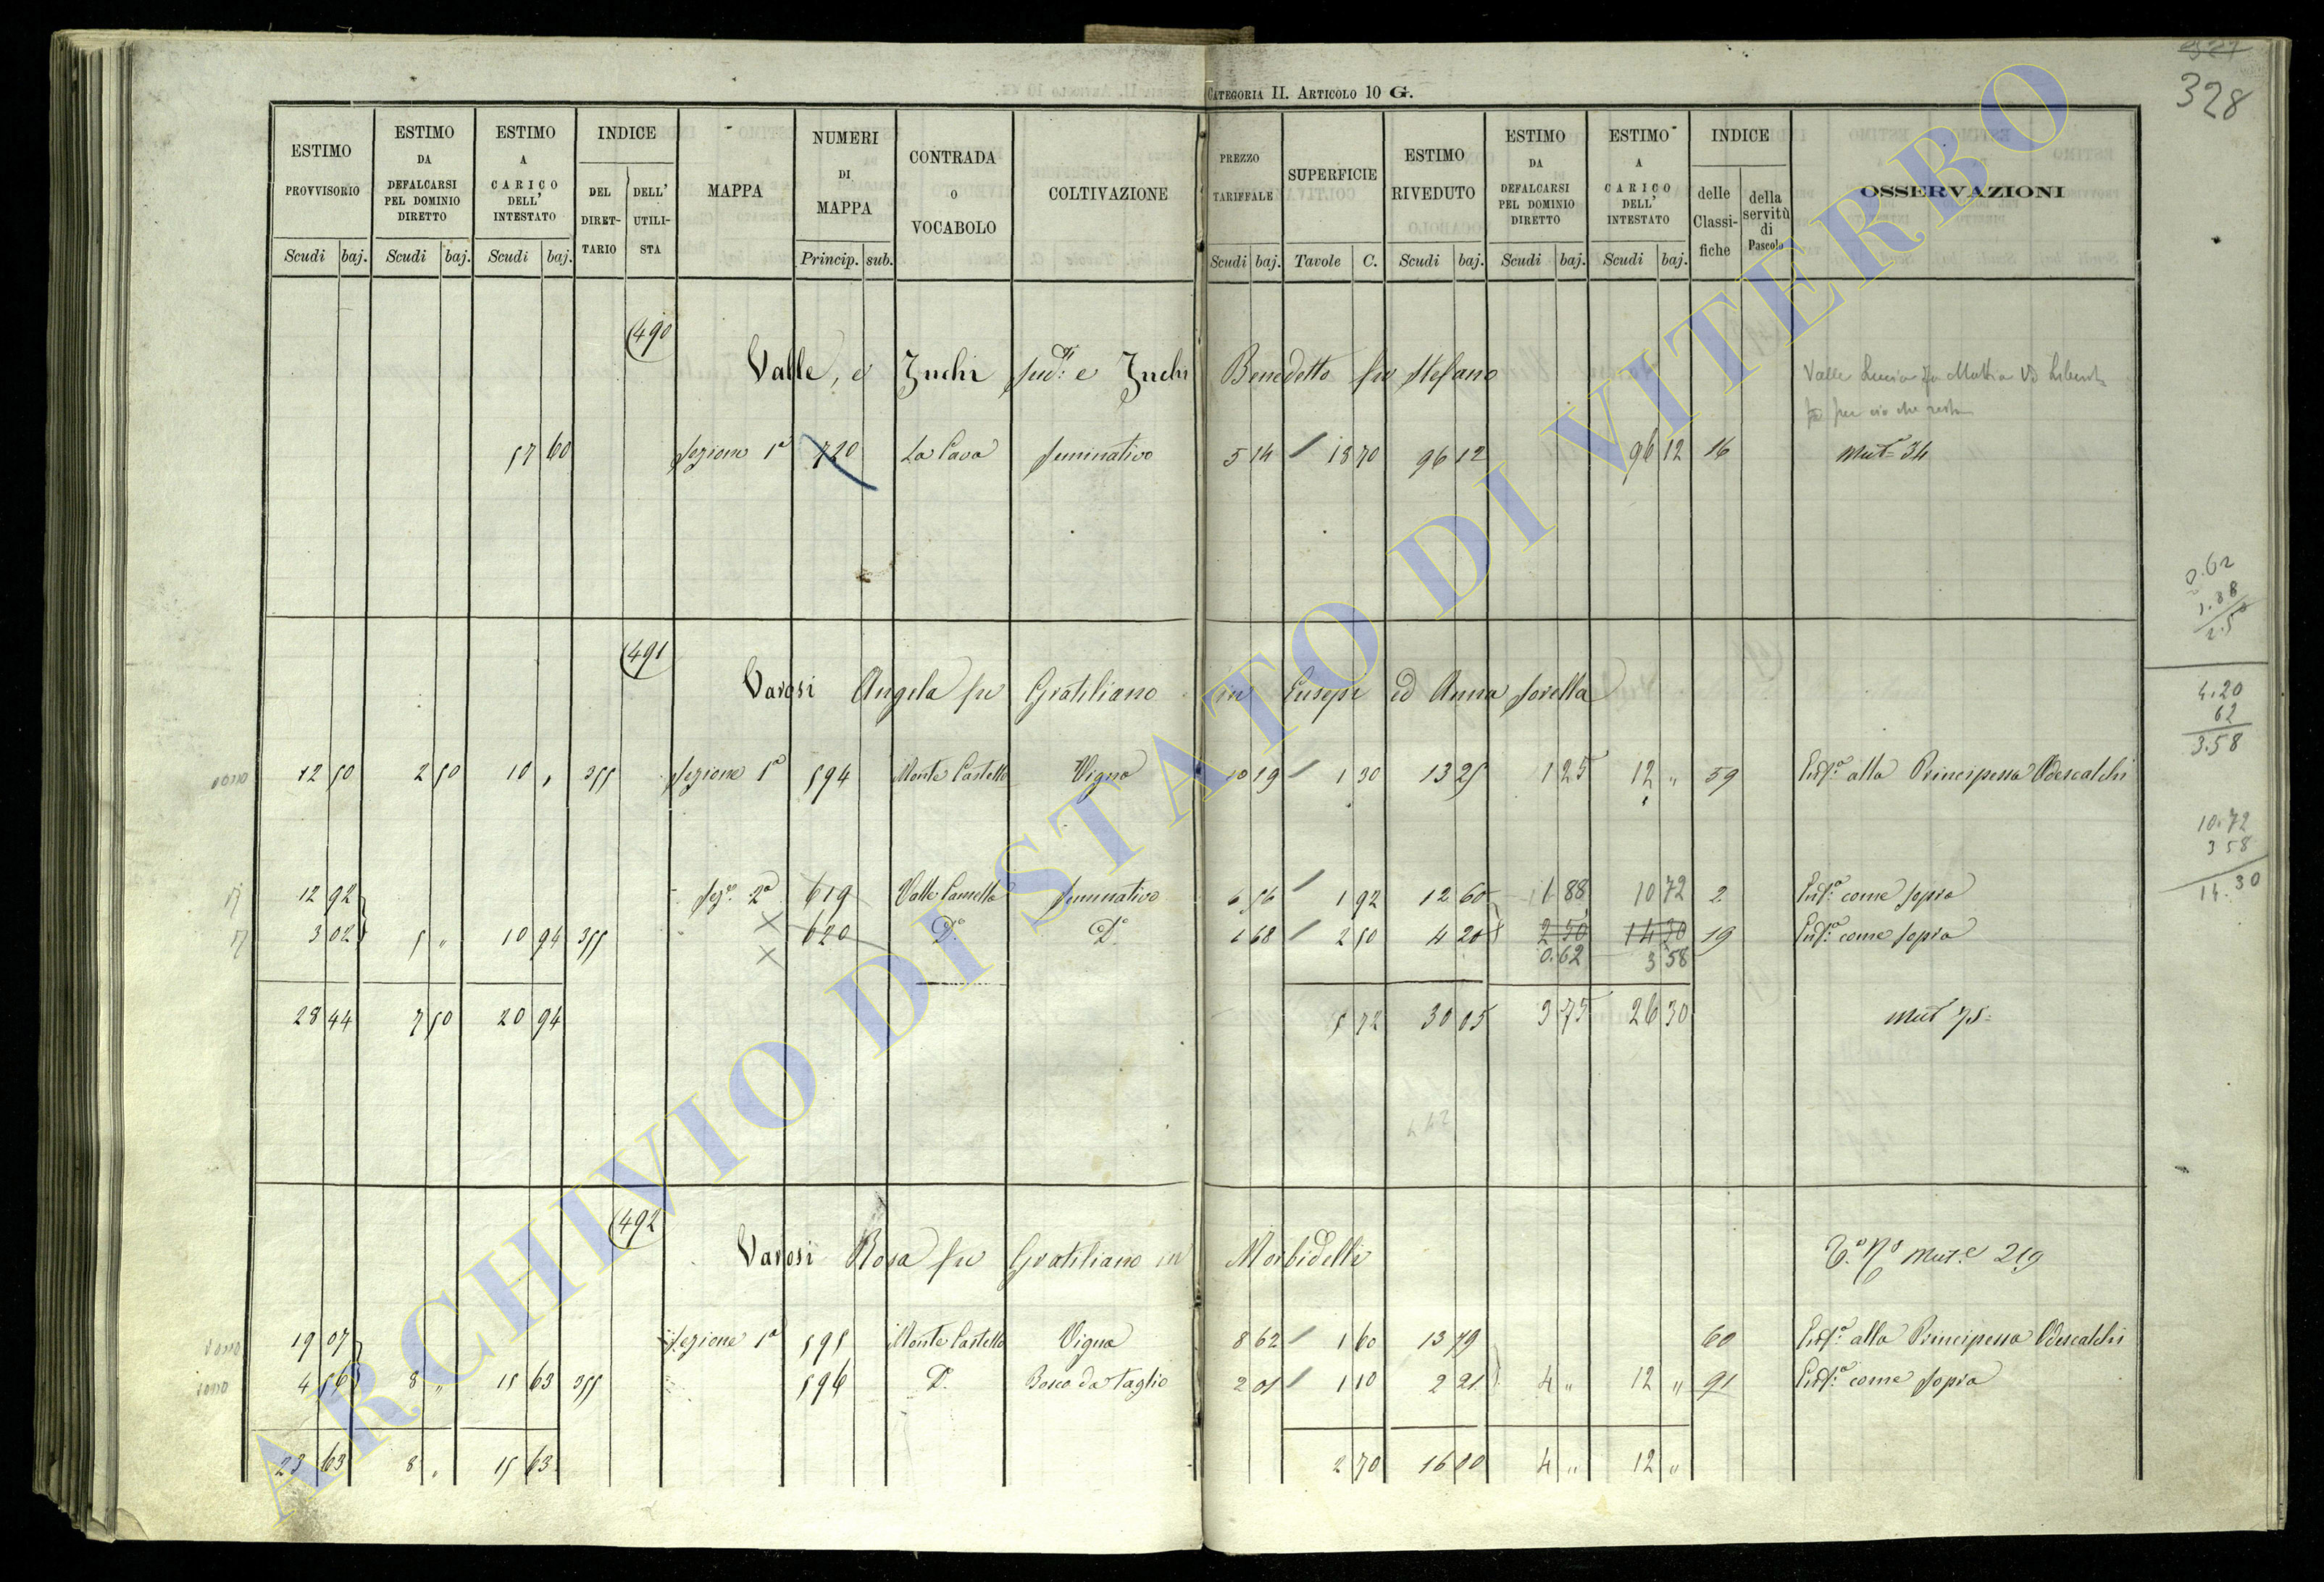 328
CATEGORIA II. ARTICOLO 10 G.
ESTIMO PROVVISORIO Scudi baj.
ESTIMO DA DEFALCARSI PEL DOMINIO DIRETTO Scudi baj.
ESTIMO A CARICO DELL' INTESTATO Scudi baj.
INDICE DEL DIRET-TARIO DELL' UTILI-STA
MAPPA
NUMERI DI MAPPA Princip. sub.
CONTRADA O VOCABOLO
COLTIVAZIONE
PREZZO TARIFFALE Scudi baj.
SUPERFICIE Tavole C.
ESTIMO RIVEDUTO Scudi baj.
ESTIMO DA DEFALCARSI PEL DOMINIO DIRETTO Scudi baj.
ESTIMO A CARICO DELL' INTESTATO Scudi baj.
INDICE delle Classi-fiche della servitù di Pascolo
OSSERVAZIONI
490
Valle, e Zuchi sud.i e Zuchi Benedetto fu Stefano
57 60 Sezione 1a 720 La Cava Seminativo 5 14 18 70 96 12 96 12 16 Mut.e 34
0.62
1.88
2.50
491
Varosi Angela fu Gratiliano in Eusepi ed Anna sorella
4.20
62
3.58
12 50 2 50 10 „ 355 Sezione 1a 594 Monte Castello Vigna 10 19 1 30 13 25 1 25 12 „ 59 Enf.a alla Principessa Odescalchi
10.72
3 58
14.30
12 92 Sez.e 2a 619 Valle Camella Seminativo 6 56 1 92 12 60 1 88 10 72 2 Enf.a come sopra
3 02 5 „ 10 94 355 620 D.o D.o 1 68 2 50 4 20 2 50 14 30 19 Enf.a come sopra
0.62 3 58
28 44 7 50 20 94 5 72 30 05 3 75 26 30 Mut 75
492
Varosi Rosa fu Gratiliano in Morbidelli
Mut.e 219
19 07 Sezione 1a 595 Monte Castello Vigna 8 62 1 60 13 79 60 Enf.a alla Principessa Odescalchi
4 56 8 „ 15 63 355 596 D.o Bosco da Taglio 2 01 1 10 2 21 4 „ 12 „ 91 Enf.a come sopra
23 63 8 „ 15 63 2 70 16 00 4 „ 12 „
ARCHIVIO DI STATO DI VITERBO